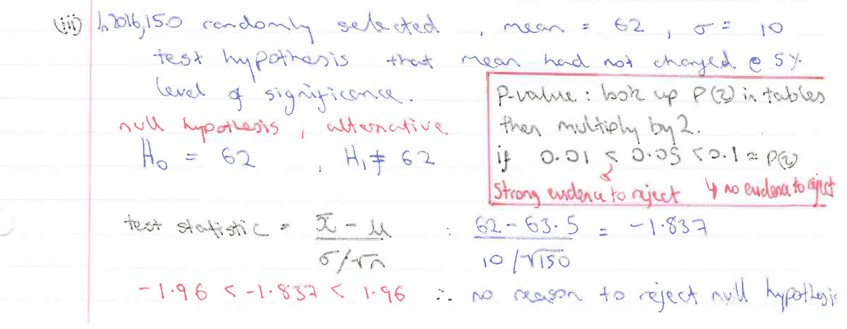 (iii) In 2016, 150 randomly selected, mean = 62, σ = 10
test hypothesis that mean had not changed @ 5%
level of significance.
null hypothesis, alternative
H₀ = 62, H₁ ≠ 62
P-value: look up P(z) in tables
then multiply by 2.
if 0.01 < 0.05 < 0.1 = P(z)
strong evidence to reject ↳ no evidence to reject
test statistic = x̄ - μ / σ/√n : 62 - 63.5 / 10/√150 = -1.837
-1.96 < -1.837 < 1.96 ∴ no reason to reject null hypothesis